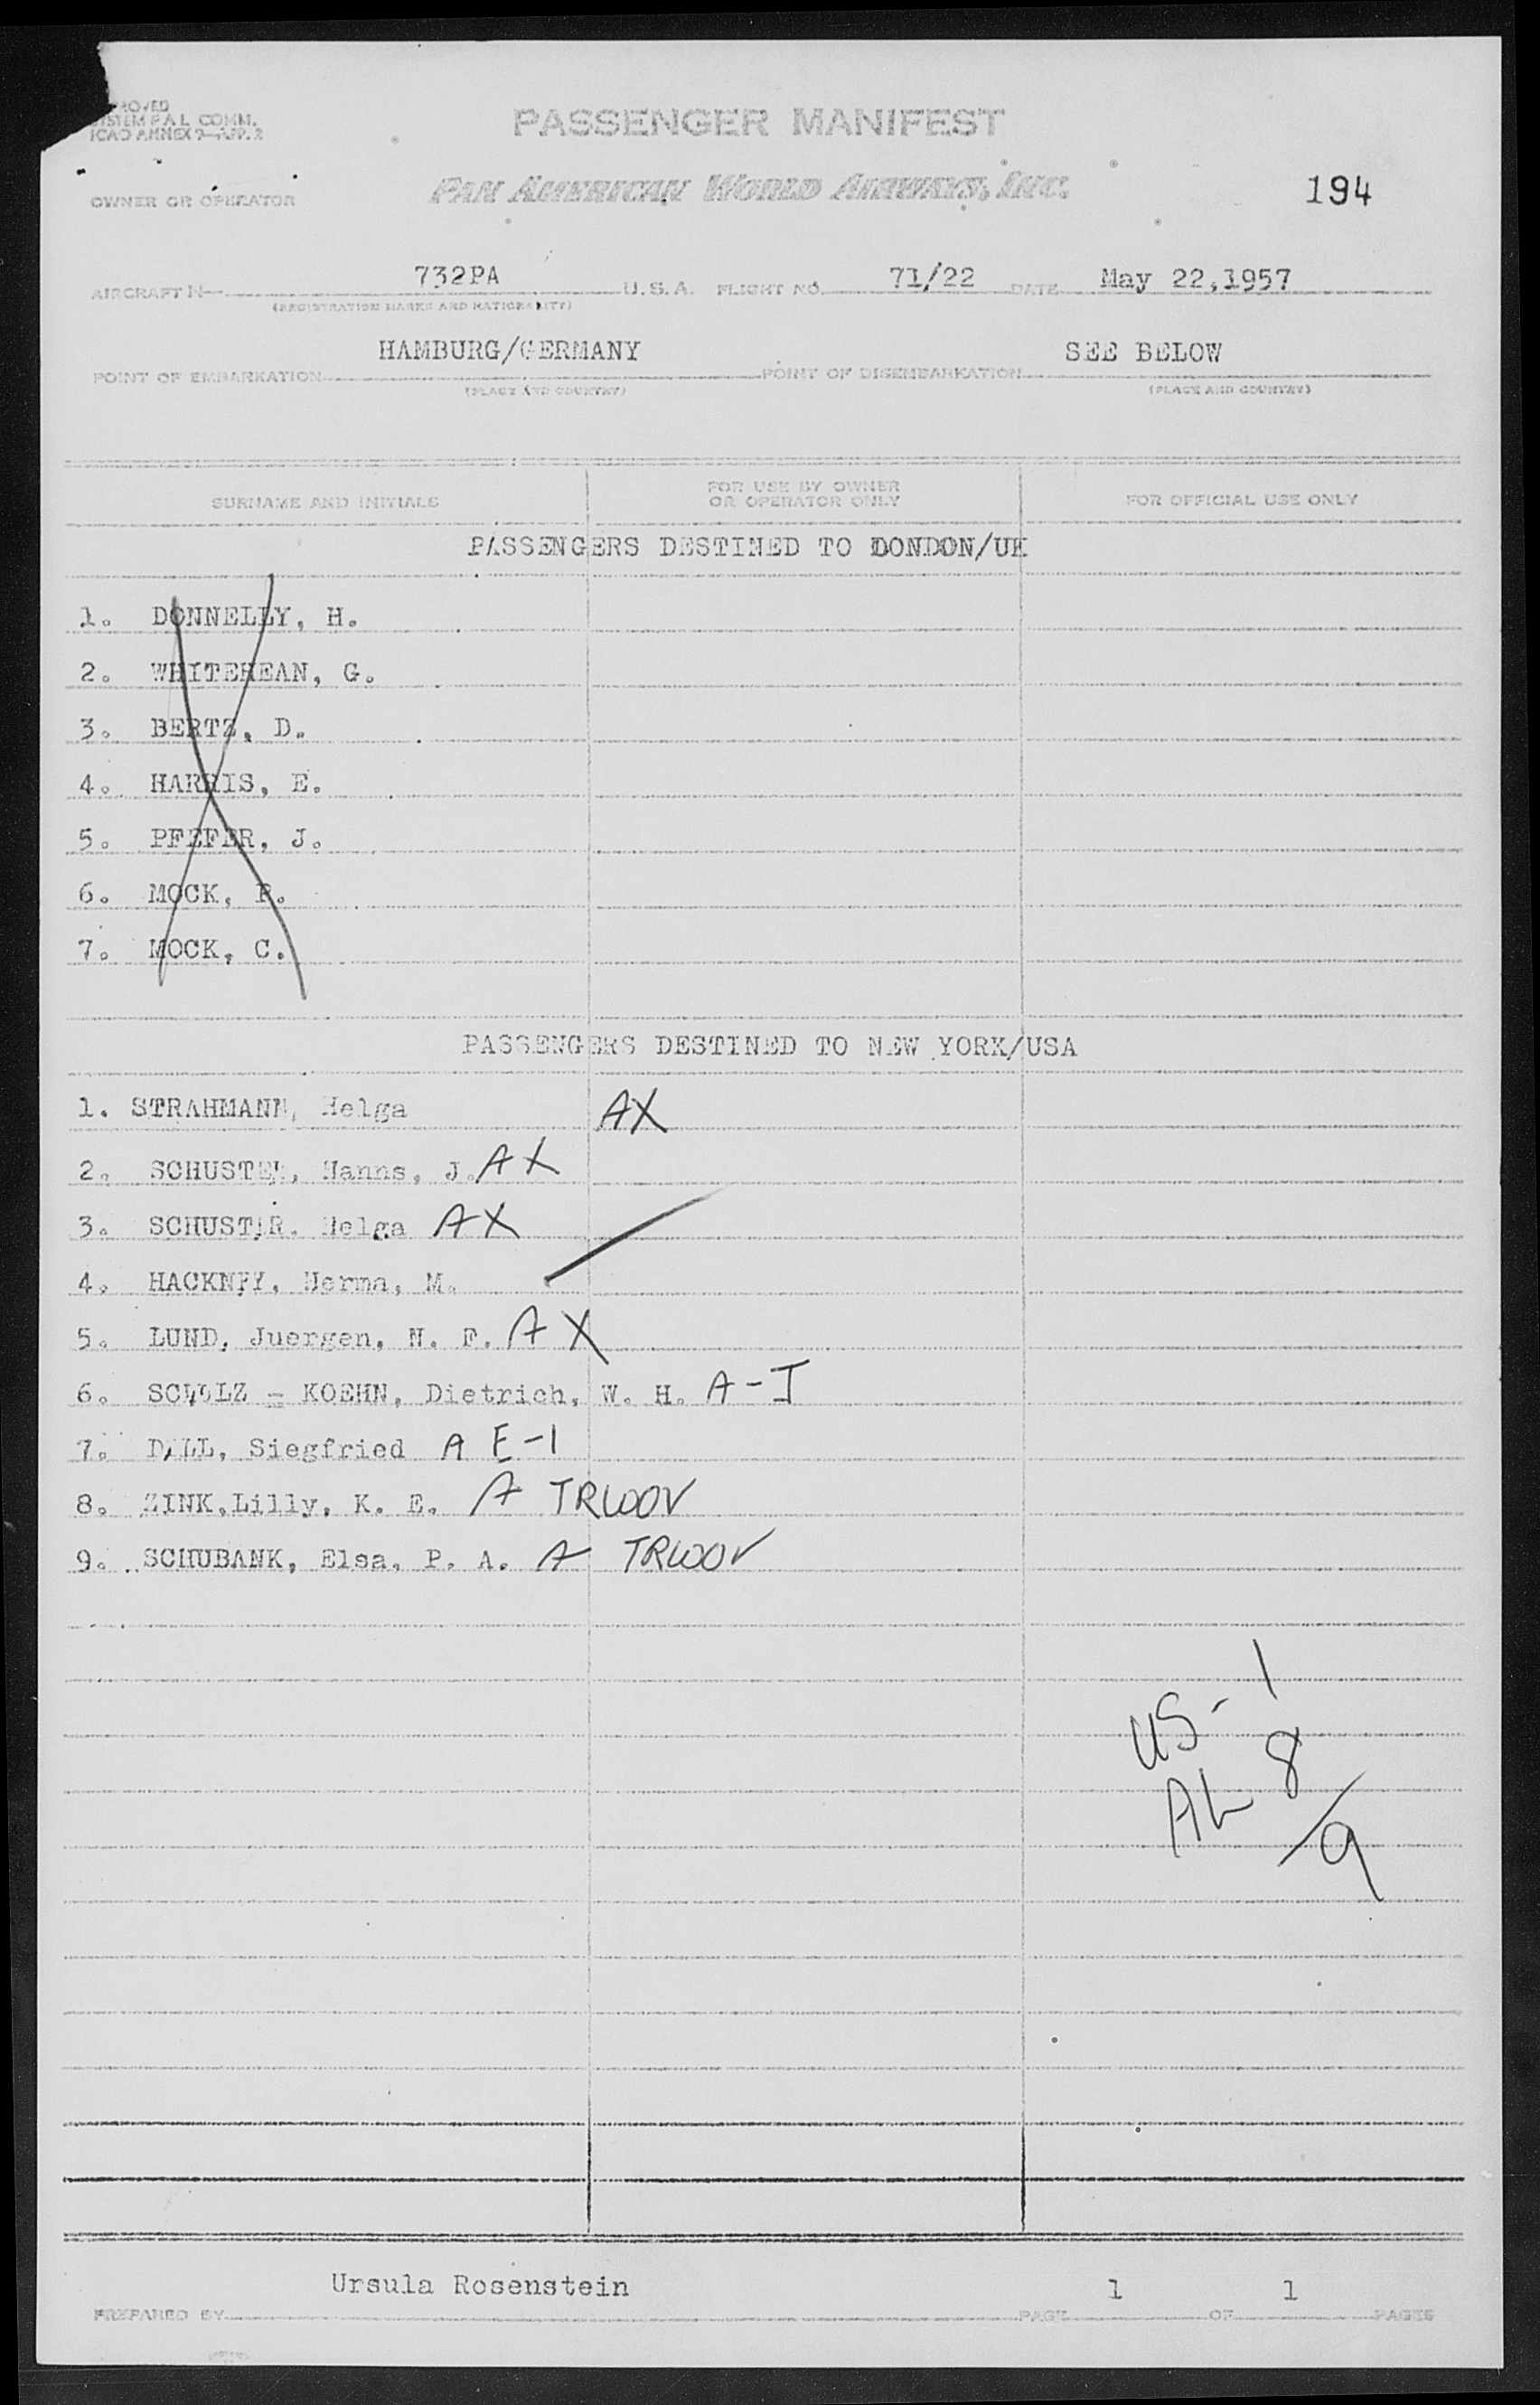 PASSENGER MANIFEST
ICAO ANNEX 9—APP. 2
OWNER OR OPERATOR
PAN AMERICAN WORLD AIRWAYS, INC.
194
AIRCRAFT N— 732PA U.S.A. FLIGHT NO. 71/22 DATE May 22,1957
(REGISTRATION MARKS AND NATIONALITY)
HAMBURG/GERMANY SEE BELOW
POINT OF EMBARKATION POINT OF DISEMBARKATION
(PLACE AND COUNTRY) (PLACE AND COUNTRY)
SURNAME AND INITIALS FOR USE BY OWNER OR OPERATOR ONLY FOR OFFICIAL USE ONLY
PASSENGERS DESTINED TO DONDON/UK
1. DONNELLY, H.
2. WHITEHEAN, G.
3. BERTZ, D.
4. HARRIS, E.
5. PFEFER, J.
6. MOCK,
7. MOCK, C.
PASSENGERS DESTINED TO NEW YORK/USA
1. STRAHMANN, Helga AX
2. SCHUSTER, Hanns, J. AX
3. SCHUSTER. Helga AX
4. HACKNEY, Herma, M.
5. LUND, Juergen, N. F. AX
6. KOEHN, Dietrich, W. H. A-I
7. Siegfried A E-1
8. ZINK,Lilly, K. E. A TRWOV
9. SCHUBANK, Elsa, P. A. A TRWOV
US- 1
AL 8
9
Ursula Rosenstein
PREPARED BY PAGE 1 OF 1 PAGES